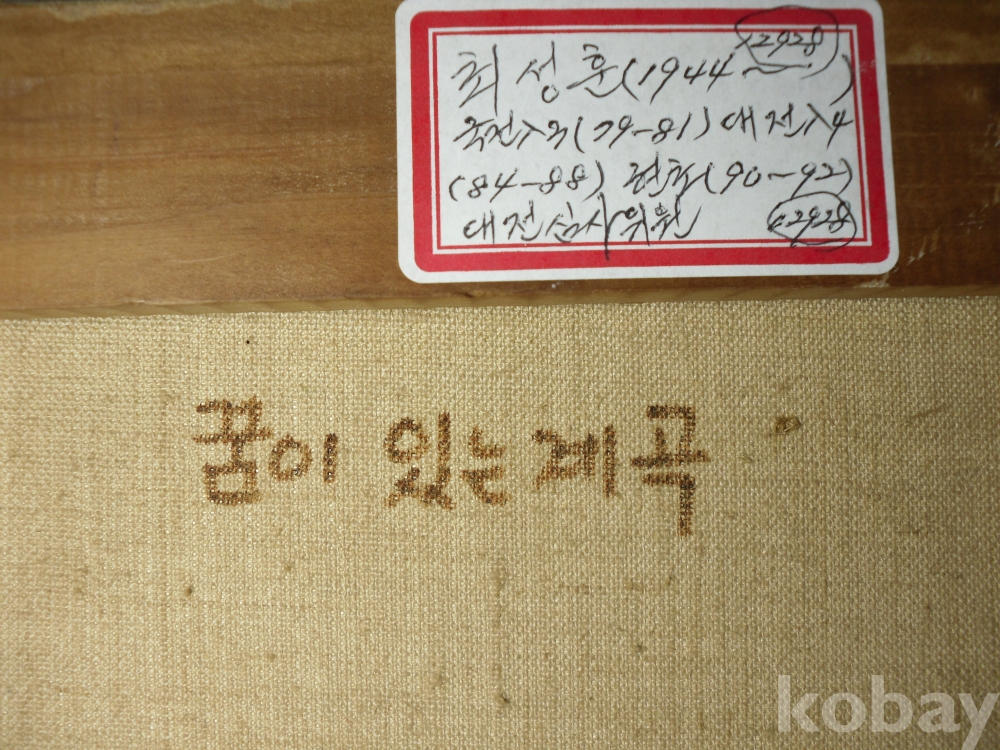 12928
최성훈(1944~ )
국전入3(79-81) 대전入4
(84-88), 현회(90-92)
대전심사위원 12928
꿈이 있는 계곡
kobay